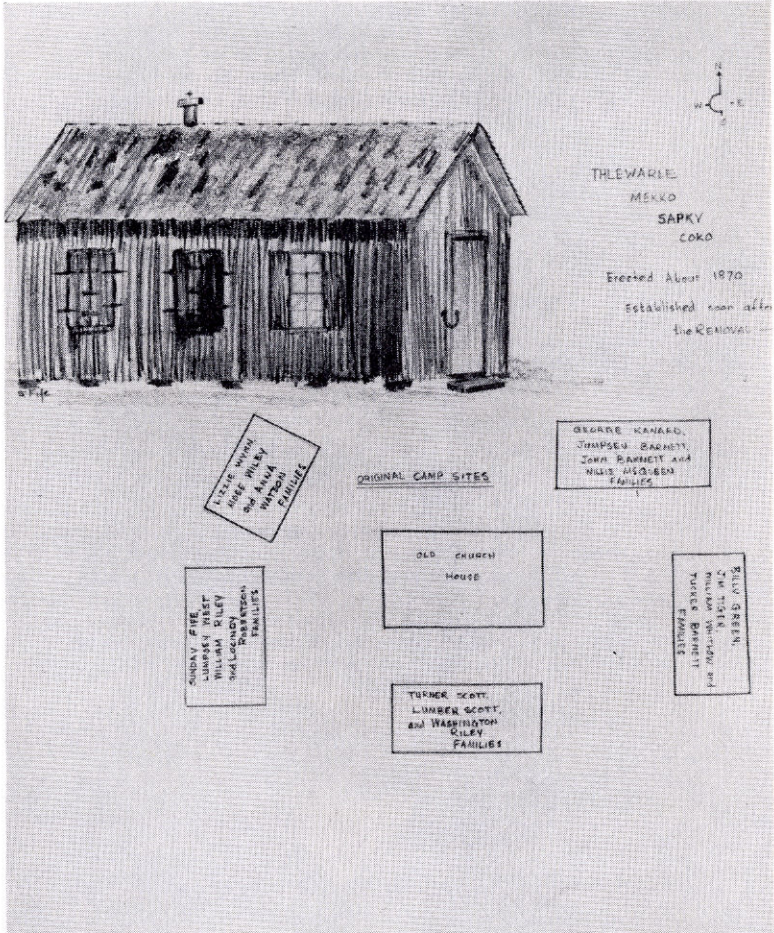 N
W E
S
THLEWARLE
MEKKO
SAPKY
COKO
Erected About 1870
Established soon after
the REMOVAL —
S Fife
LIZZIE WYNN,
WILEY
and ANNA
WATSON
FAMILIES
ORIGINAL CAMP SITES
GEORGE KANARD,
JUMPSEY BARNETT,
JOHN BARNETT and
MCQUEEN
FAMILIES
OLD CHURCH
HOUSE
SUNDAY FIFE,
LUMPSEY WEST
WILLIAM RILEY
and LOCINDY
ROBERTSON
FAMILIES
BILLY GREEN,
JIM TIGER,
WILLIAM WHITLOW and
TUCKER BARNETT
FAMILIES
TURNER SCOTT,
LUMBER SCOTT,
and WASHINGTON
RILEY
FAMILIES